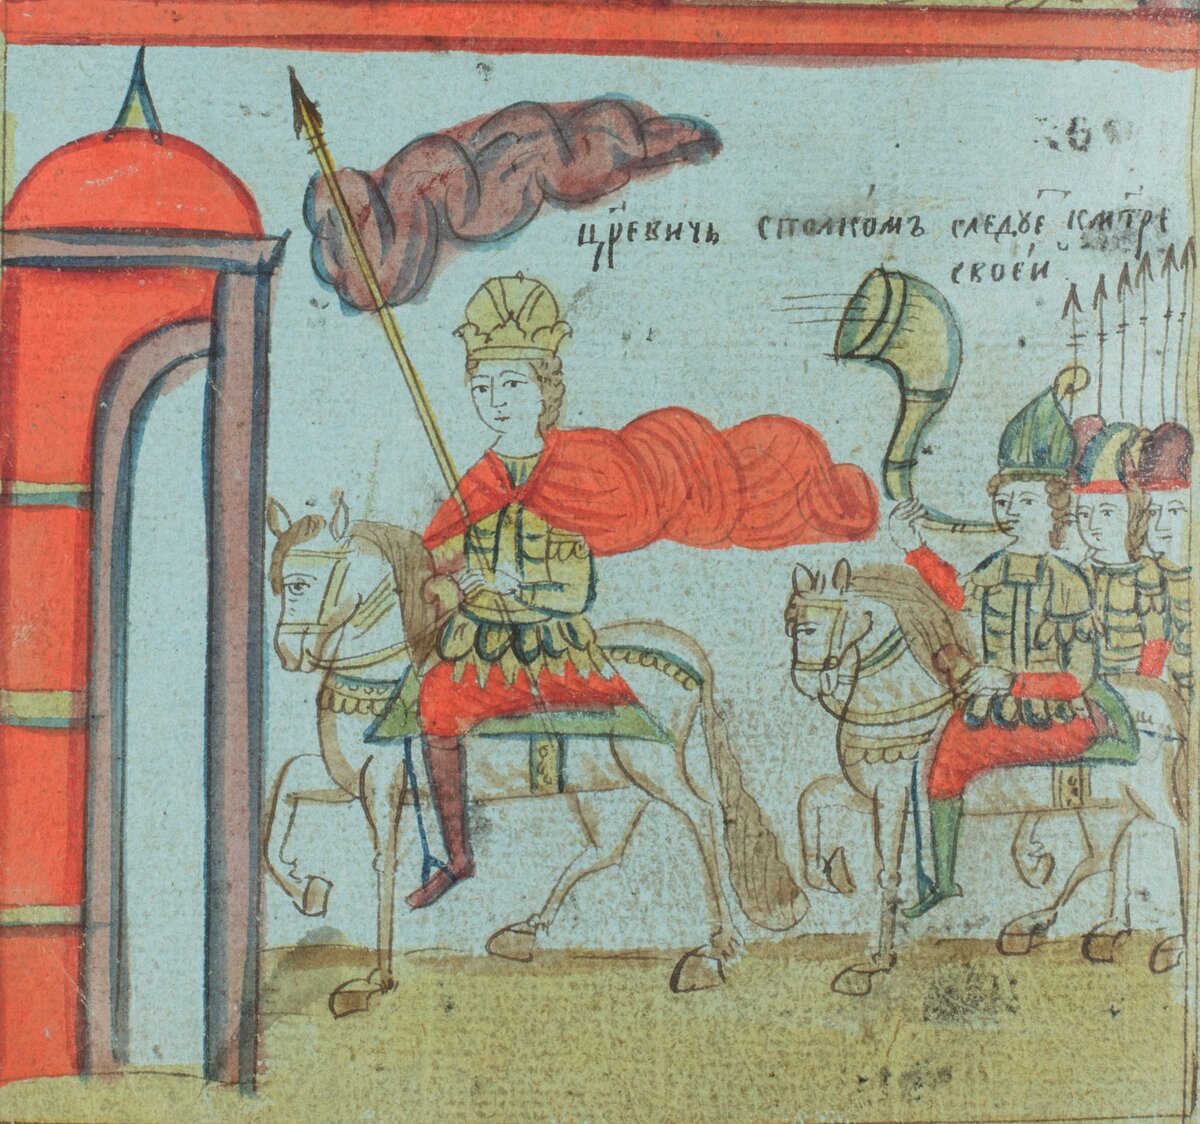 црвичь сполкомъ следуе кмтре
своеи